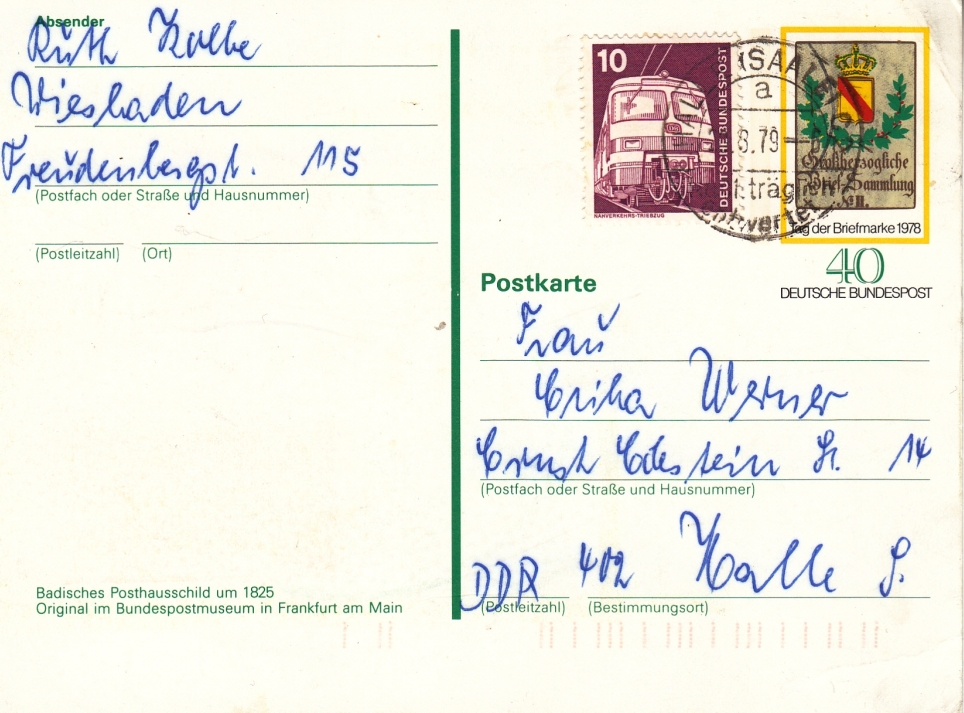 Absender
Ruth Kolbe
Wiesbaden
Freudenbergstr. 115
(Postfach oder Straße und Hausnummer)
(Postleitzahl) (Ort)
Badisches Posthausschild um 1825
Original im Bundespostmuseum in Frankfurt am Main
10
DEUTSCHE BUNDESPOST
NAHVERKEHRS-TRIEBZUG
(SAA
a
8.79
träglich
entwertet
Großherzogliche
Brief-Sammlung
Tag der Briefmarke 1978
40
DEUTSCHE BUNDESPOST
Postkarte
Frau
Erika Werner
Ernst Eckstein Str. 14
(Postfach oder Straße und Hausnummer)
DDR 402 Halle S.
(Postleitzahl) (Bestimmungsort)